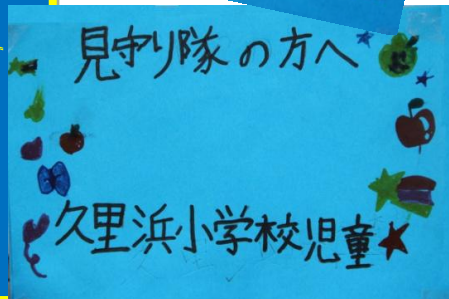 見守り隊の方へ
久里浜小学校児童